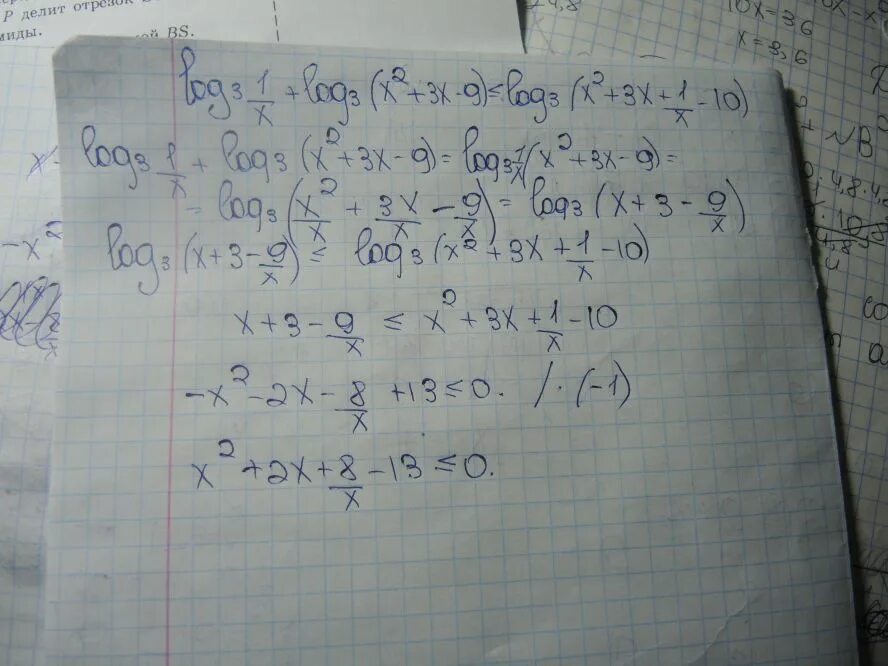 P делит отрезок B
миды.
BS.
4,8
10x = 36
x = 3,6
log₃ 1/x + log₃ (x² + 3x - 9) ≤ log₃ (x² + 3x + 1/x - 10)
log₃ 1/x + log₃ (x² + 3x - 9) = log₃ 1/x (x² + 3x - 9) =
= log₃ (x²/x + 3x/x - 9/x) = log₃ (x + 3 - 9/x)
log₃ (x + 3 - 9/x) ≤ log₃ (x² + 3x + 1/x - 10)
x + 3 - 9/x ≤ x² + 3x + 1/x - 10
-x² - 2x - 8/x + 13 ≤ 0. / · (-1)
x² + 2x + 8/x - 13 ≤ 0.
-x²